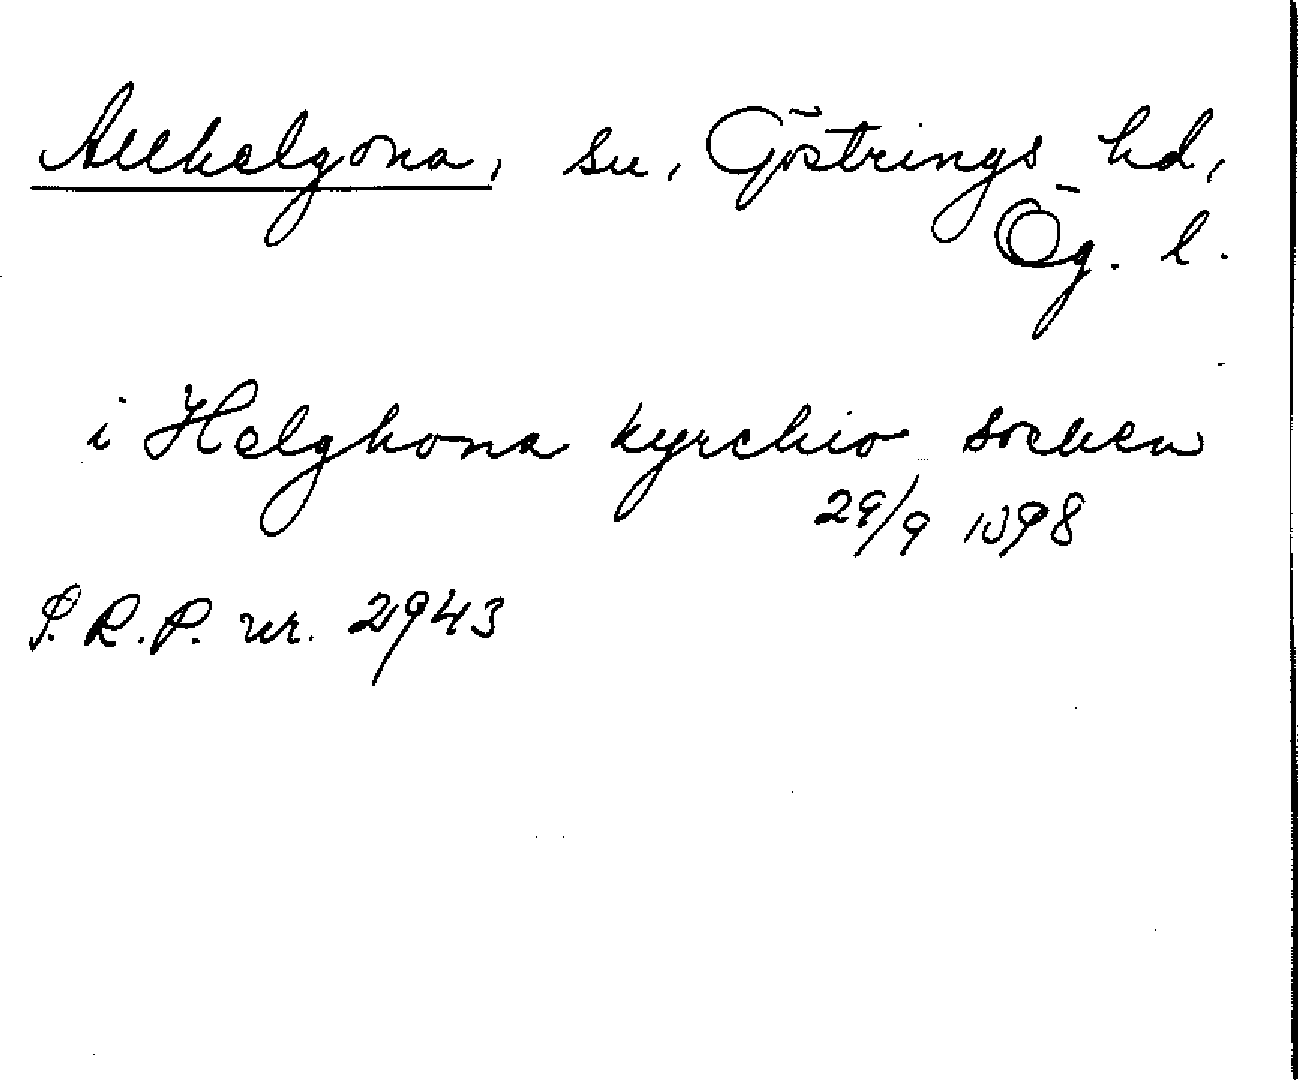 Allhelgona, sn, Göstrings hd,
Ög. l.
i Helghona kyrchio sochen
29/9 1398
S. R. P. nr. 2943